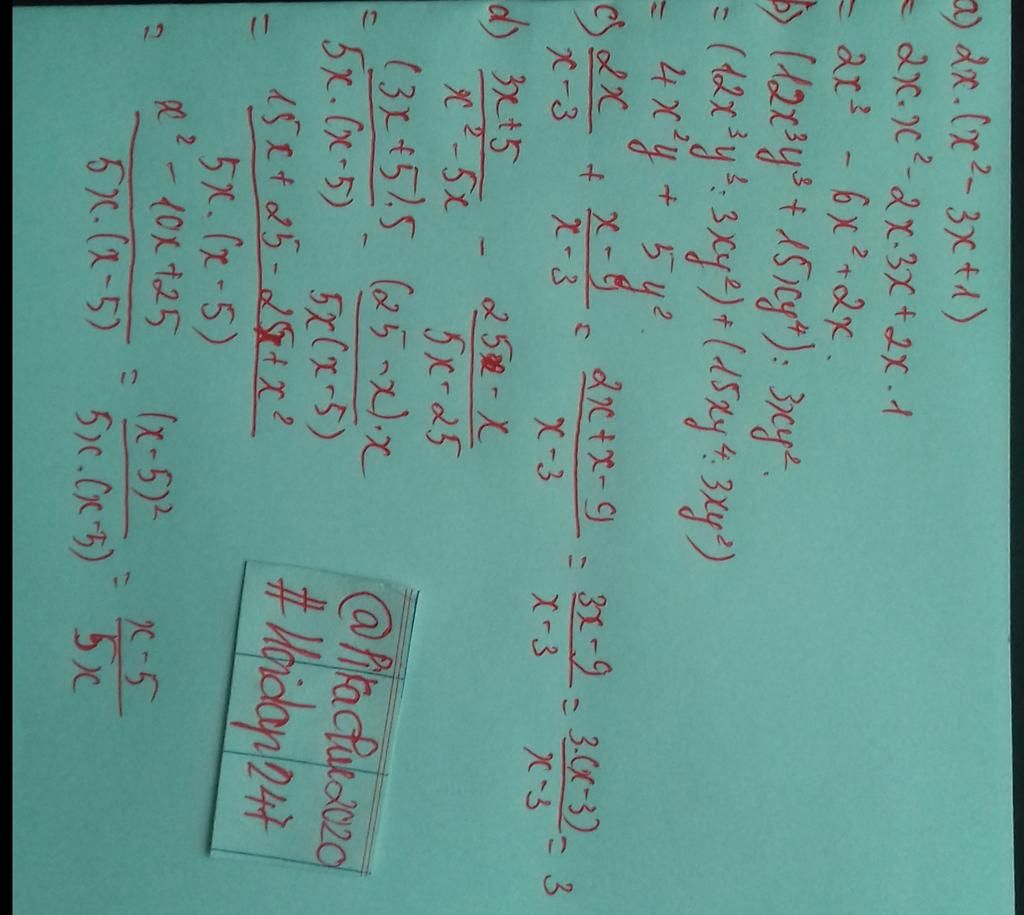 a) 2x.(x² - 3x + 1)
= 2x.x² - 2x.3x + 2x.1
= 2x³ - 6x² + 2x.
b) (12x³y³ + 15xy⁴) : 3xy².
= (12x³y³ : 3xy²) + (15xy⁴ : 3xy²)
= 4x²y + 5y².
c) 2x/x-3 + x-9/x-3 = 2x+x-9/x-3 = 3x-9/x-3 = 3.(x-3)/x-3 = 3
d) 3x+5/x²-5x - 25-x/5x-25
= (3x+5).5/5x.(x-5) - (25-x).x/5x(x-5)
= 15x+25-25x+x²/5x.(x-5)
= x²-10x+25/5x.(x-5) = (x-5)²/5x.(x-5) = x-5/5x
@Pikachue2020
#Hoidap247